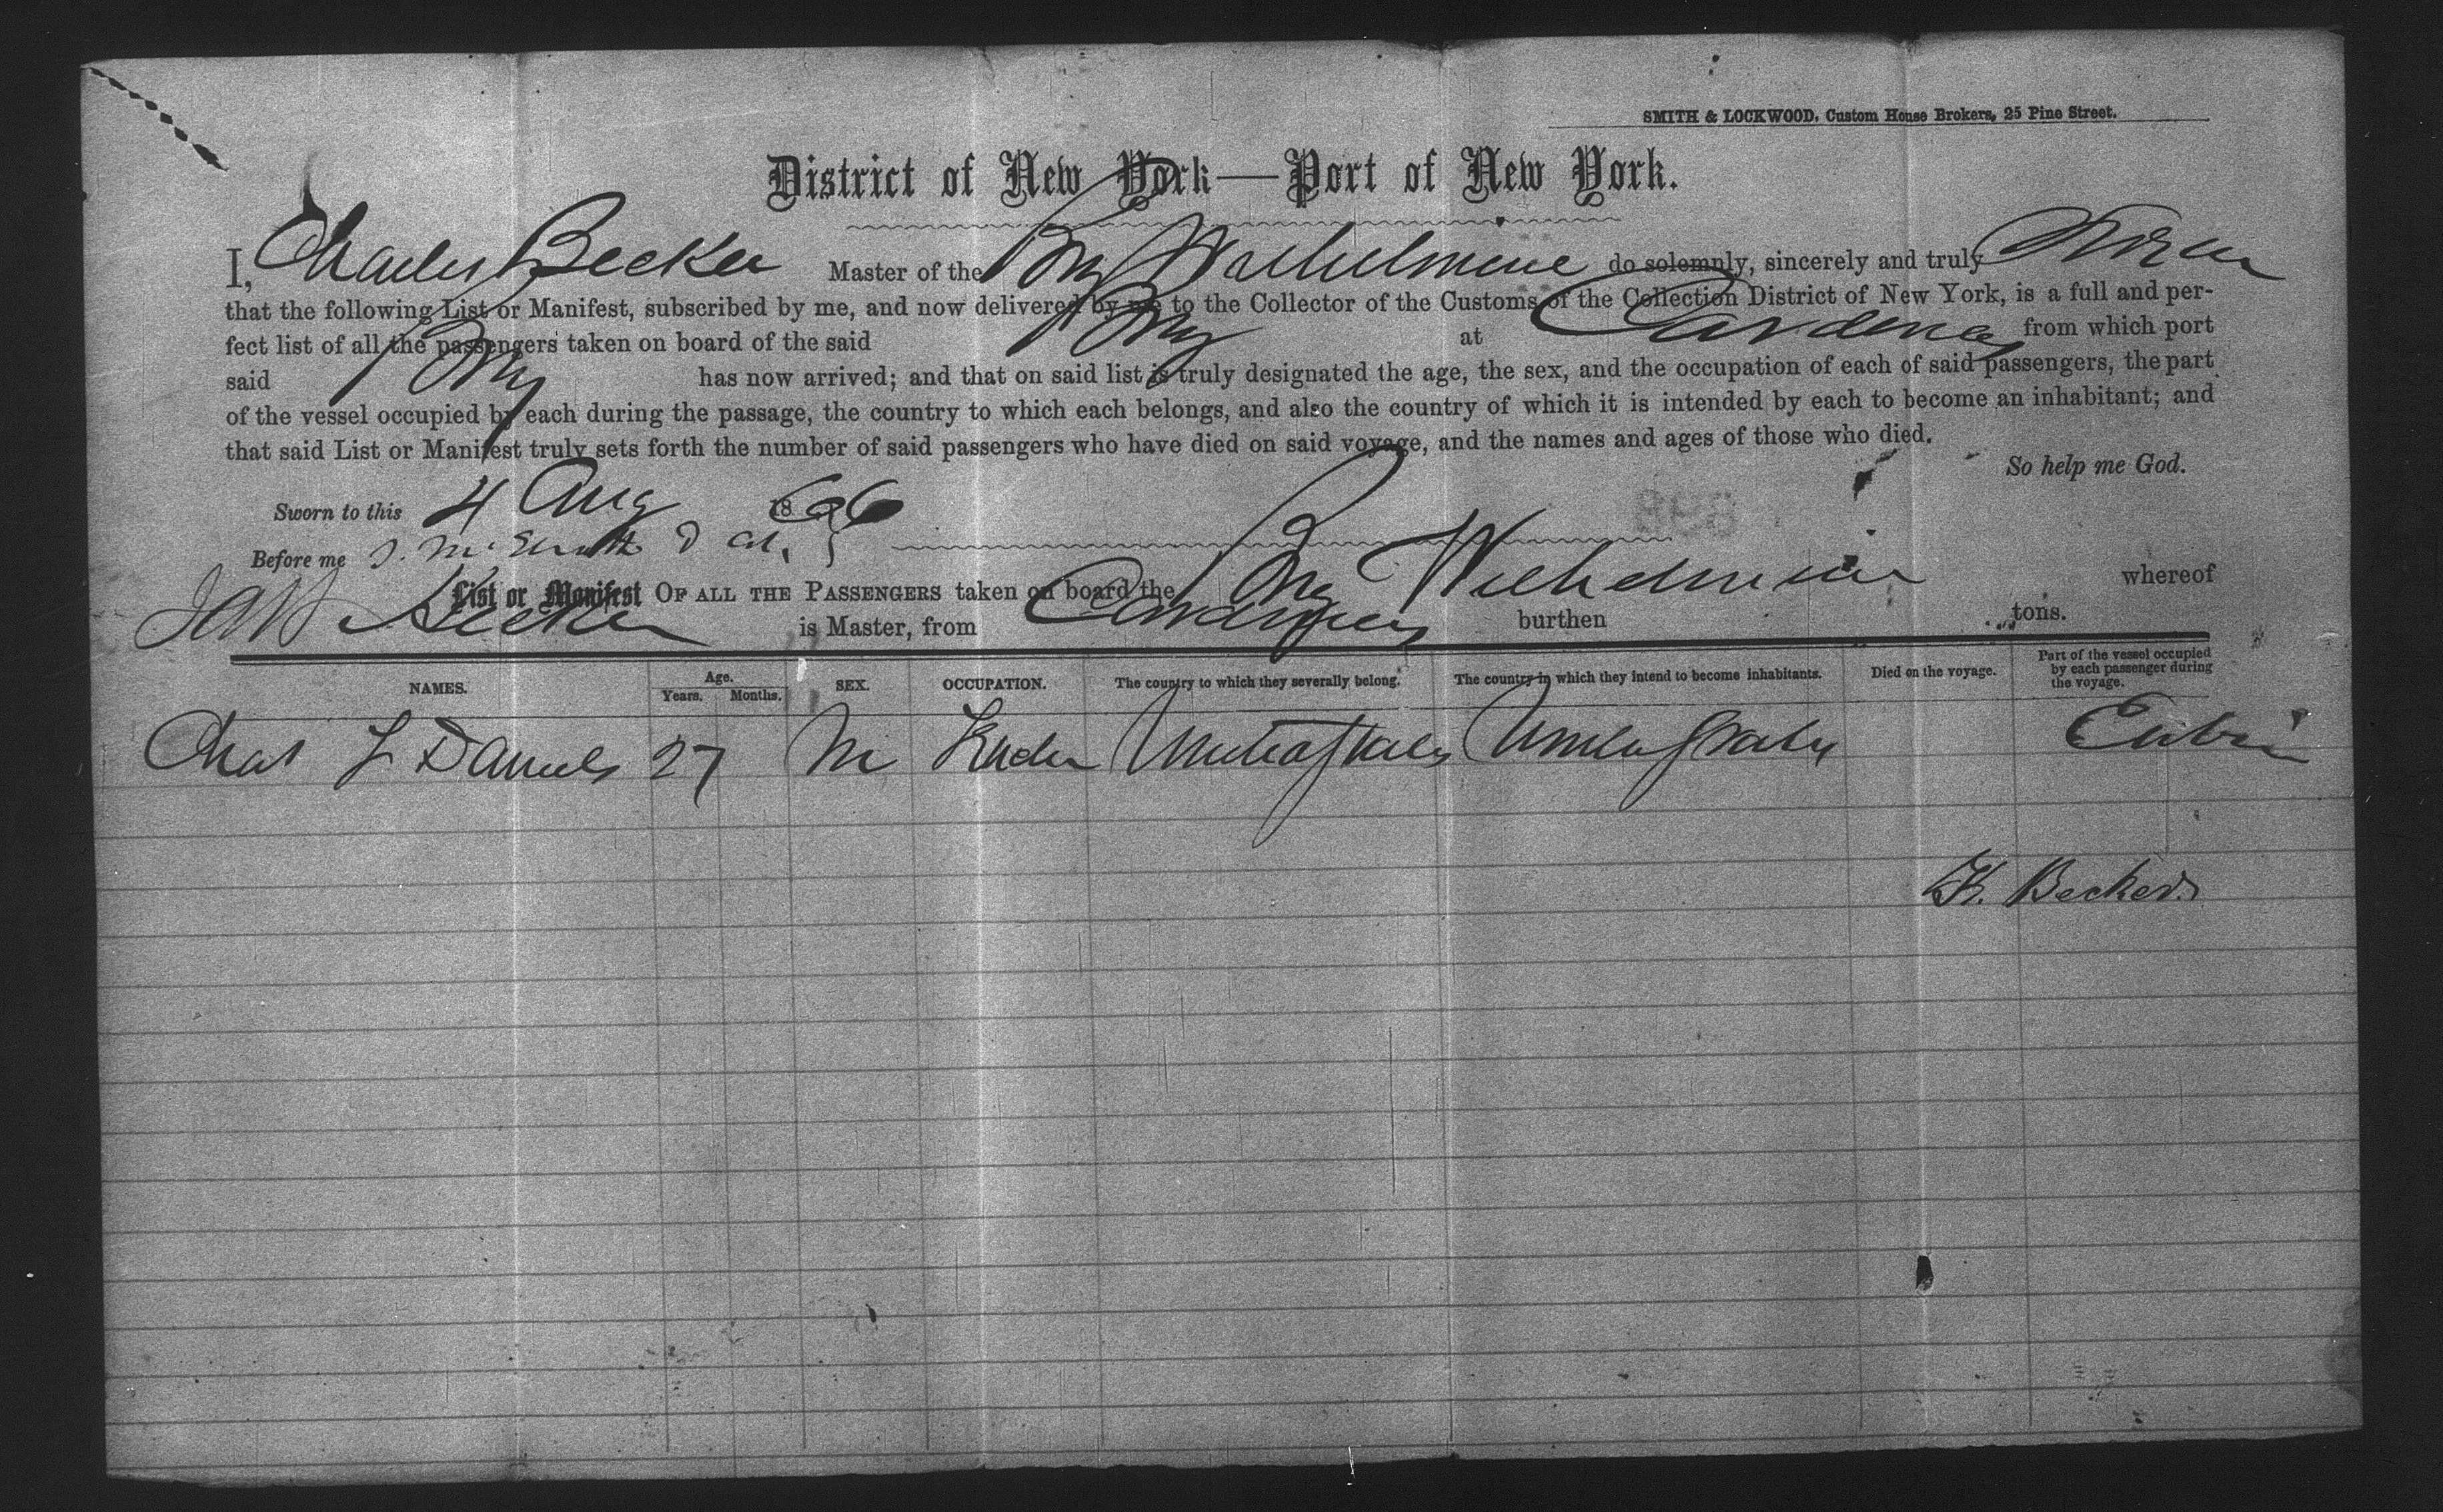 SMITH & LOCKWOOD, Custom House Brokers, 25 Pine Street.
District of New York—Port of New York.
I, Charles Becker Master of the Brig Wilhelmine do solemnly, sincerely and truly Swear
that the following List or Manifest, subscribed by me, and now delivered by me to the Collector of the Customs of the Collection District of New York, is a full and per-
fect list of all the passengers taken on board of the said Brig at Cardenas from which port
said Brig has now arrived; and that on said list is truly designated the age, the sex, and the occupation of each of said passengers, the part
of the vessel occupied by each during the passage, the country to which each belongs, and also the country of which it is intended by each to become an inhabitant; and
that said List or Manifest truly sets forth the number of said passengers who have died on said voyage, and the names and ages of those who died.
So help me God.
Sworn to this 4 Aug 1866
Before me
List or Manifest OF ALL THE PASSENGERS taken on board the Brig Wilhelmine whereof
Becker is Master, from Cardenas burthen tons.
NAMES. Age. Years. Months. SEX. OCCUPATION. The country to which they severally belong. The country in which they intend to become inhabitants. Died on the voyage. Part of the vessel occupied by each passenger during the voyage.
Chas L Daniels 27 M United States United States Cabin
K. Becker.